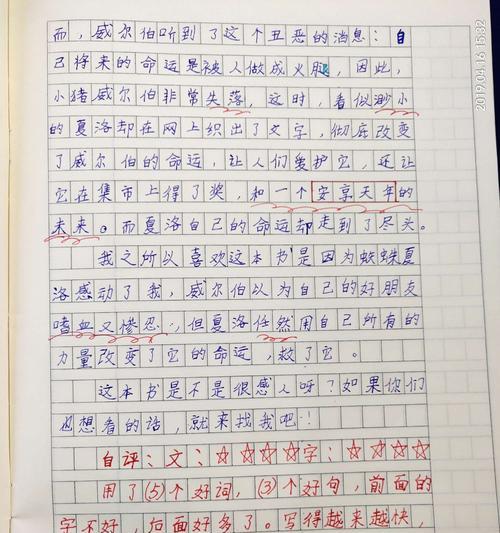 而，威尔伯听到了这个丑恶的消息：自
己将来的命运是被人做成火腿，因此，
小猪威尔伯非常失落，这时，看似渺小
的夏洛却在网上织出了文字，彻底改变
了威尔伯的命运，让人们爱护它，还让
它在集市上得了奖，和一个安享天年的
未来。而夏洛自己的命运却走到了尽头。
我之所以喜欢这本书是因为蜘蛛夏
洛感动了我，威尔伯以为自己的好朋友
嗜血又惨忍，但夏洛任然用自己所有的
力量改变了它的命运，救了它。
这本书是不是很感人呀？如果你们
也想看的话，就来找我吧！
自评：文：☆☆☆☆字：☆☆☆☆
用了(5)个好词，(3)个好句，前面的
字不好，后面好多了。写得越来越快，
2019.04.16 15:32